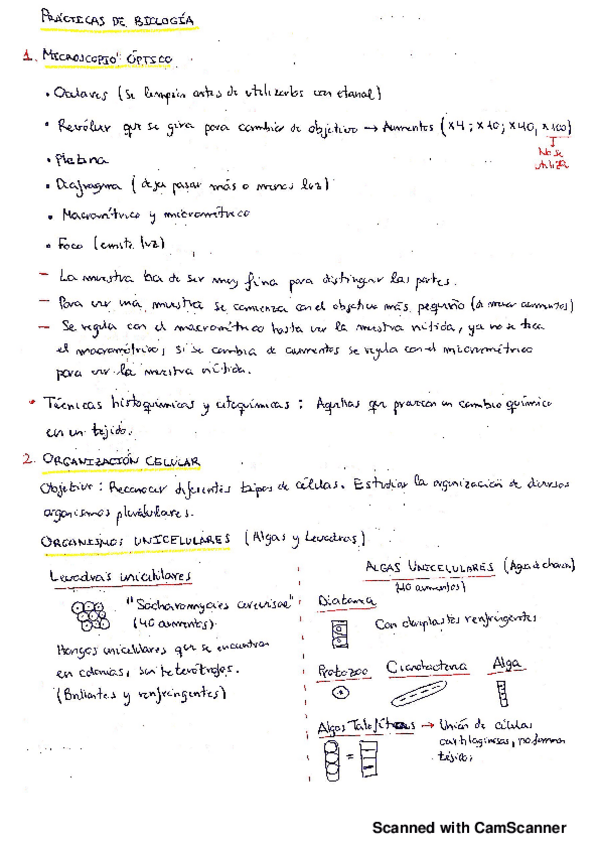 PRÁCTICAS DE BIOLOGÍA
1. MICROSCOPIO ÓPTICO
• Oculares (Se limpian antes de utilizarlos con etanol)
• Revólver que se gira para cambiar de objetivo → Aumentos (x4; x10; x40, x100)
No se utiliza
• Pletina
• Diafragma (deja pasar más o menos luz)
• Macrométrico y micrométrico
• Foco (emite luz)
- La muestra ha de ser muy fina para distinguir las partes.
- Para ver una muestra se comienza con el objetivo más pequeño (de menor aumentos)
- Se regula con el macrométrico hasta ver la muestra nítida, ya no se toca
el macrométrico, si se cambia de aumentos se regula con el micrométrico
para ver la muestra nítida.
• Técnicas histoquímicas y citoquímicas: Aquellas que provocan un cambio químico
en un tejido.
2. ORGANIZACIÓN CELULAR
Objetivo: Reconocer diferentes tipos de células. Estudiar la organización de diversos
organismos pluricelulares.
ORGANISMOS UNICELULARES (Algas y Levaduras)
Levaduras unicelulares
"Saccharomyces cerevisae"
(40 aumentos)
Hongos unicelulares que se encuentran
en colonias, son heterótrofos.
(Brillantes y renfringentes)
ALGAS UNICELULARES (Agua de charca)
(40 aumentos)
Diatomea
Con cloroplastos renfringentes
Protozoo Cianobacteria Alga
Algas Talofíticas → Unión de células
cartilaginosas, no forman
tejido.
=
Scanned with CamScanner